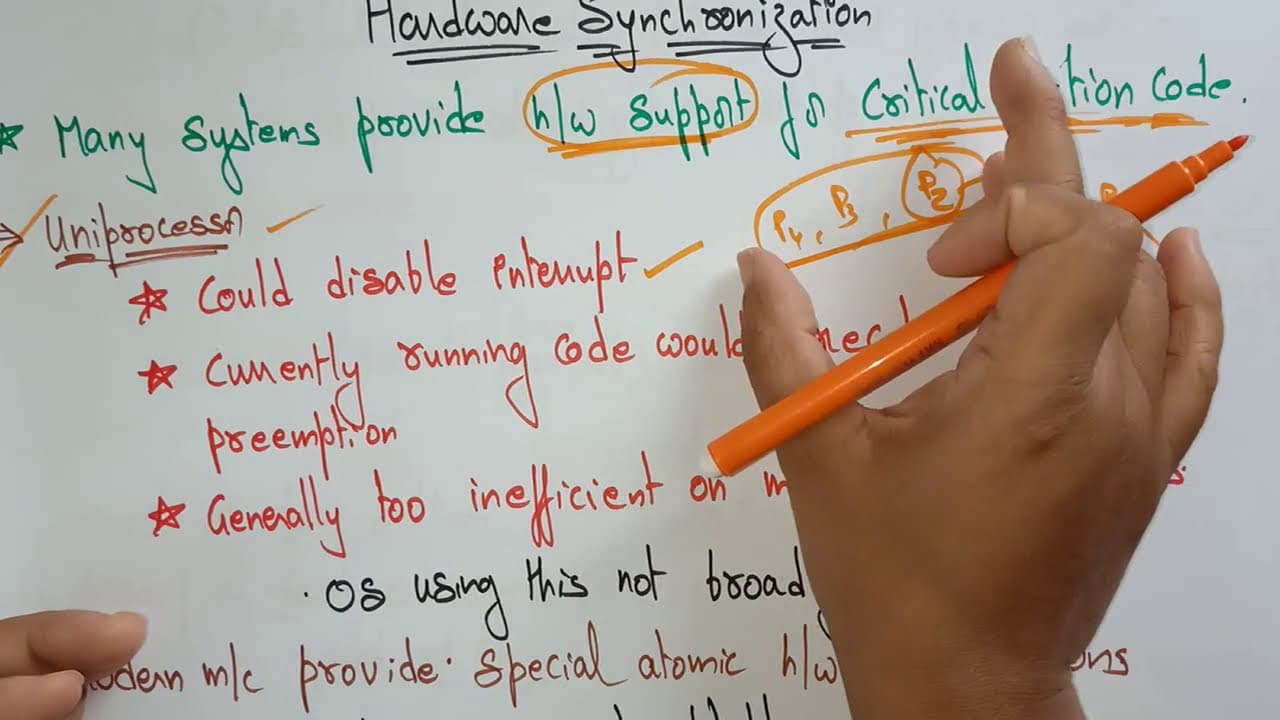 Hardware Synchronization
Many Systems provide h/w Support for Critical tion Code.
P4, P3, P2
Uniprocessor
Could disable interrupt
Currently running Code would
preemption
Generally too inefficient on m
. OS using this not broad
odern m/c provide. Special atomic h/w ons